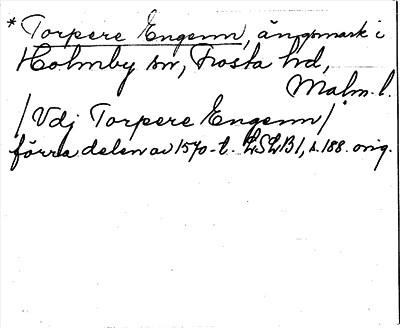 * Torpere Engenn, ängsmark i
Holmby sn, Frosta hd,
Malm. l.
/Vdj Torpere Engenn/
förra delen av 1570-t. LSLB1, s. 188. orig.